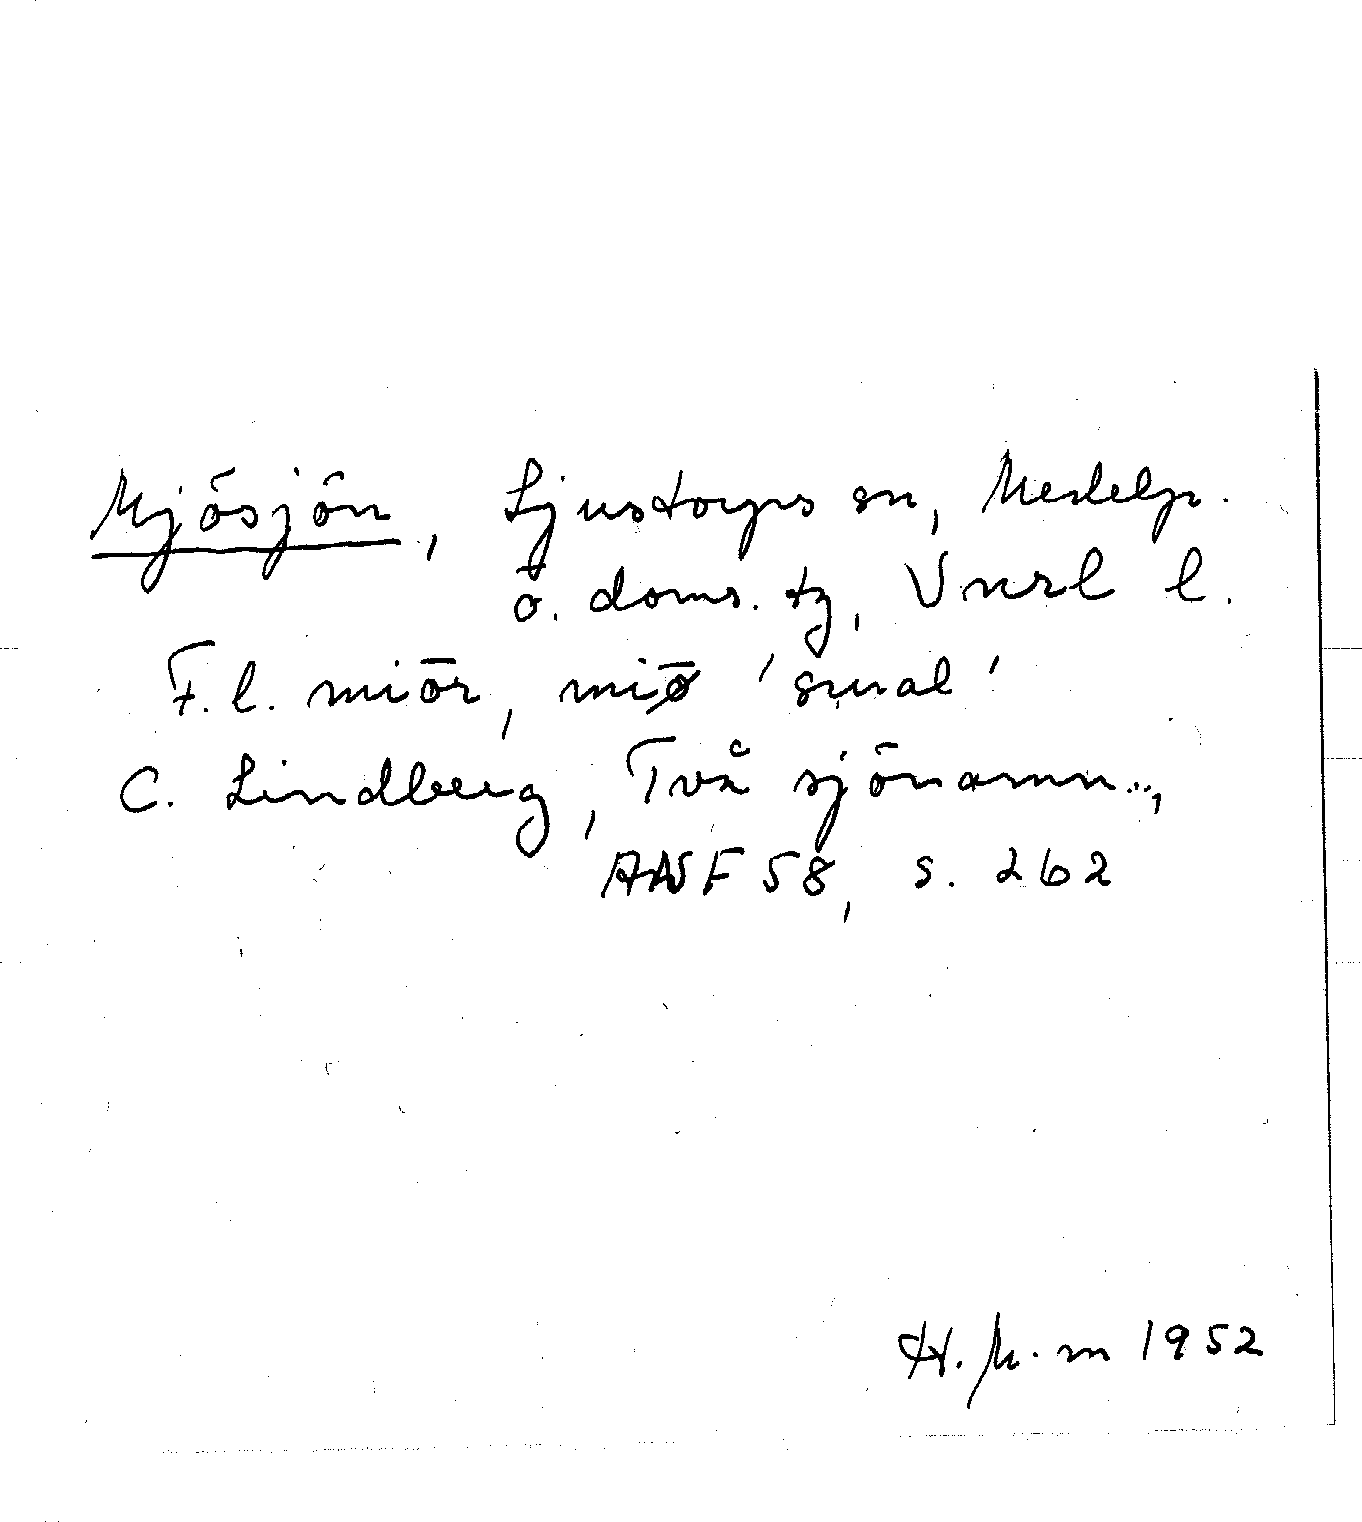 Mjösjön, Ljustorps sn, Medelp.
ö. doms. tg, Vnrl l.
F.l. miōr, miø̄ 'smal'
C. Lindberg, Två sjönamn..,
ANF 58, s. 262
H. M. m 1952